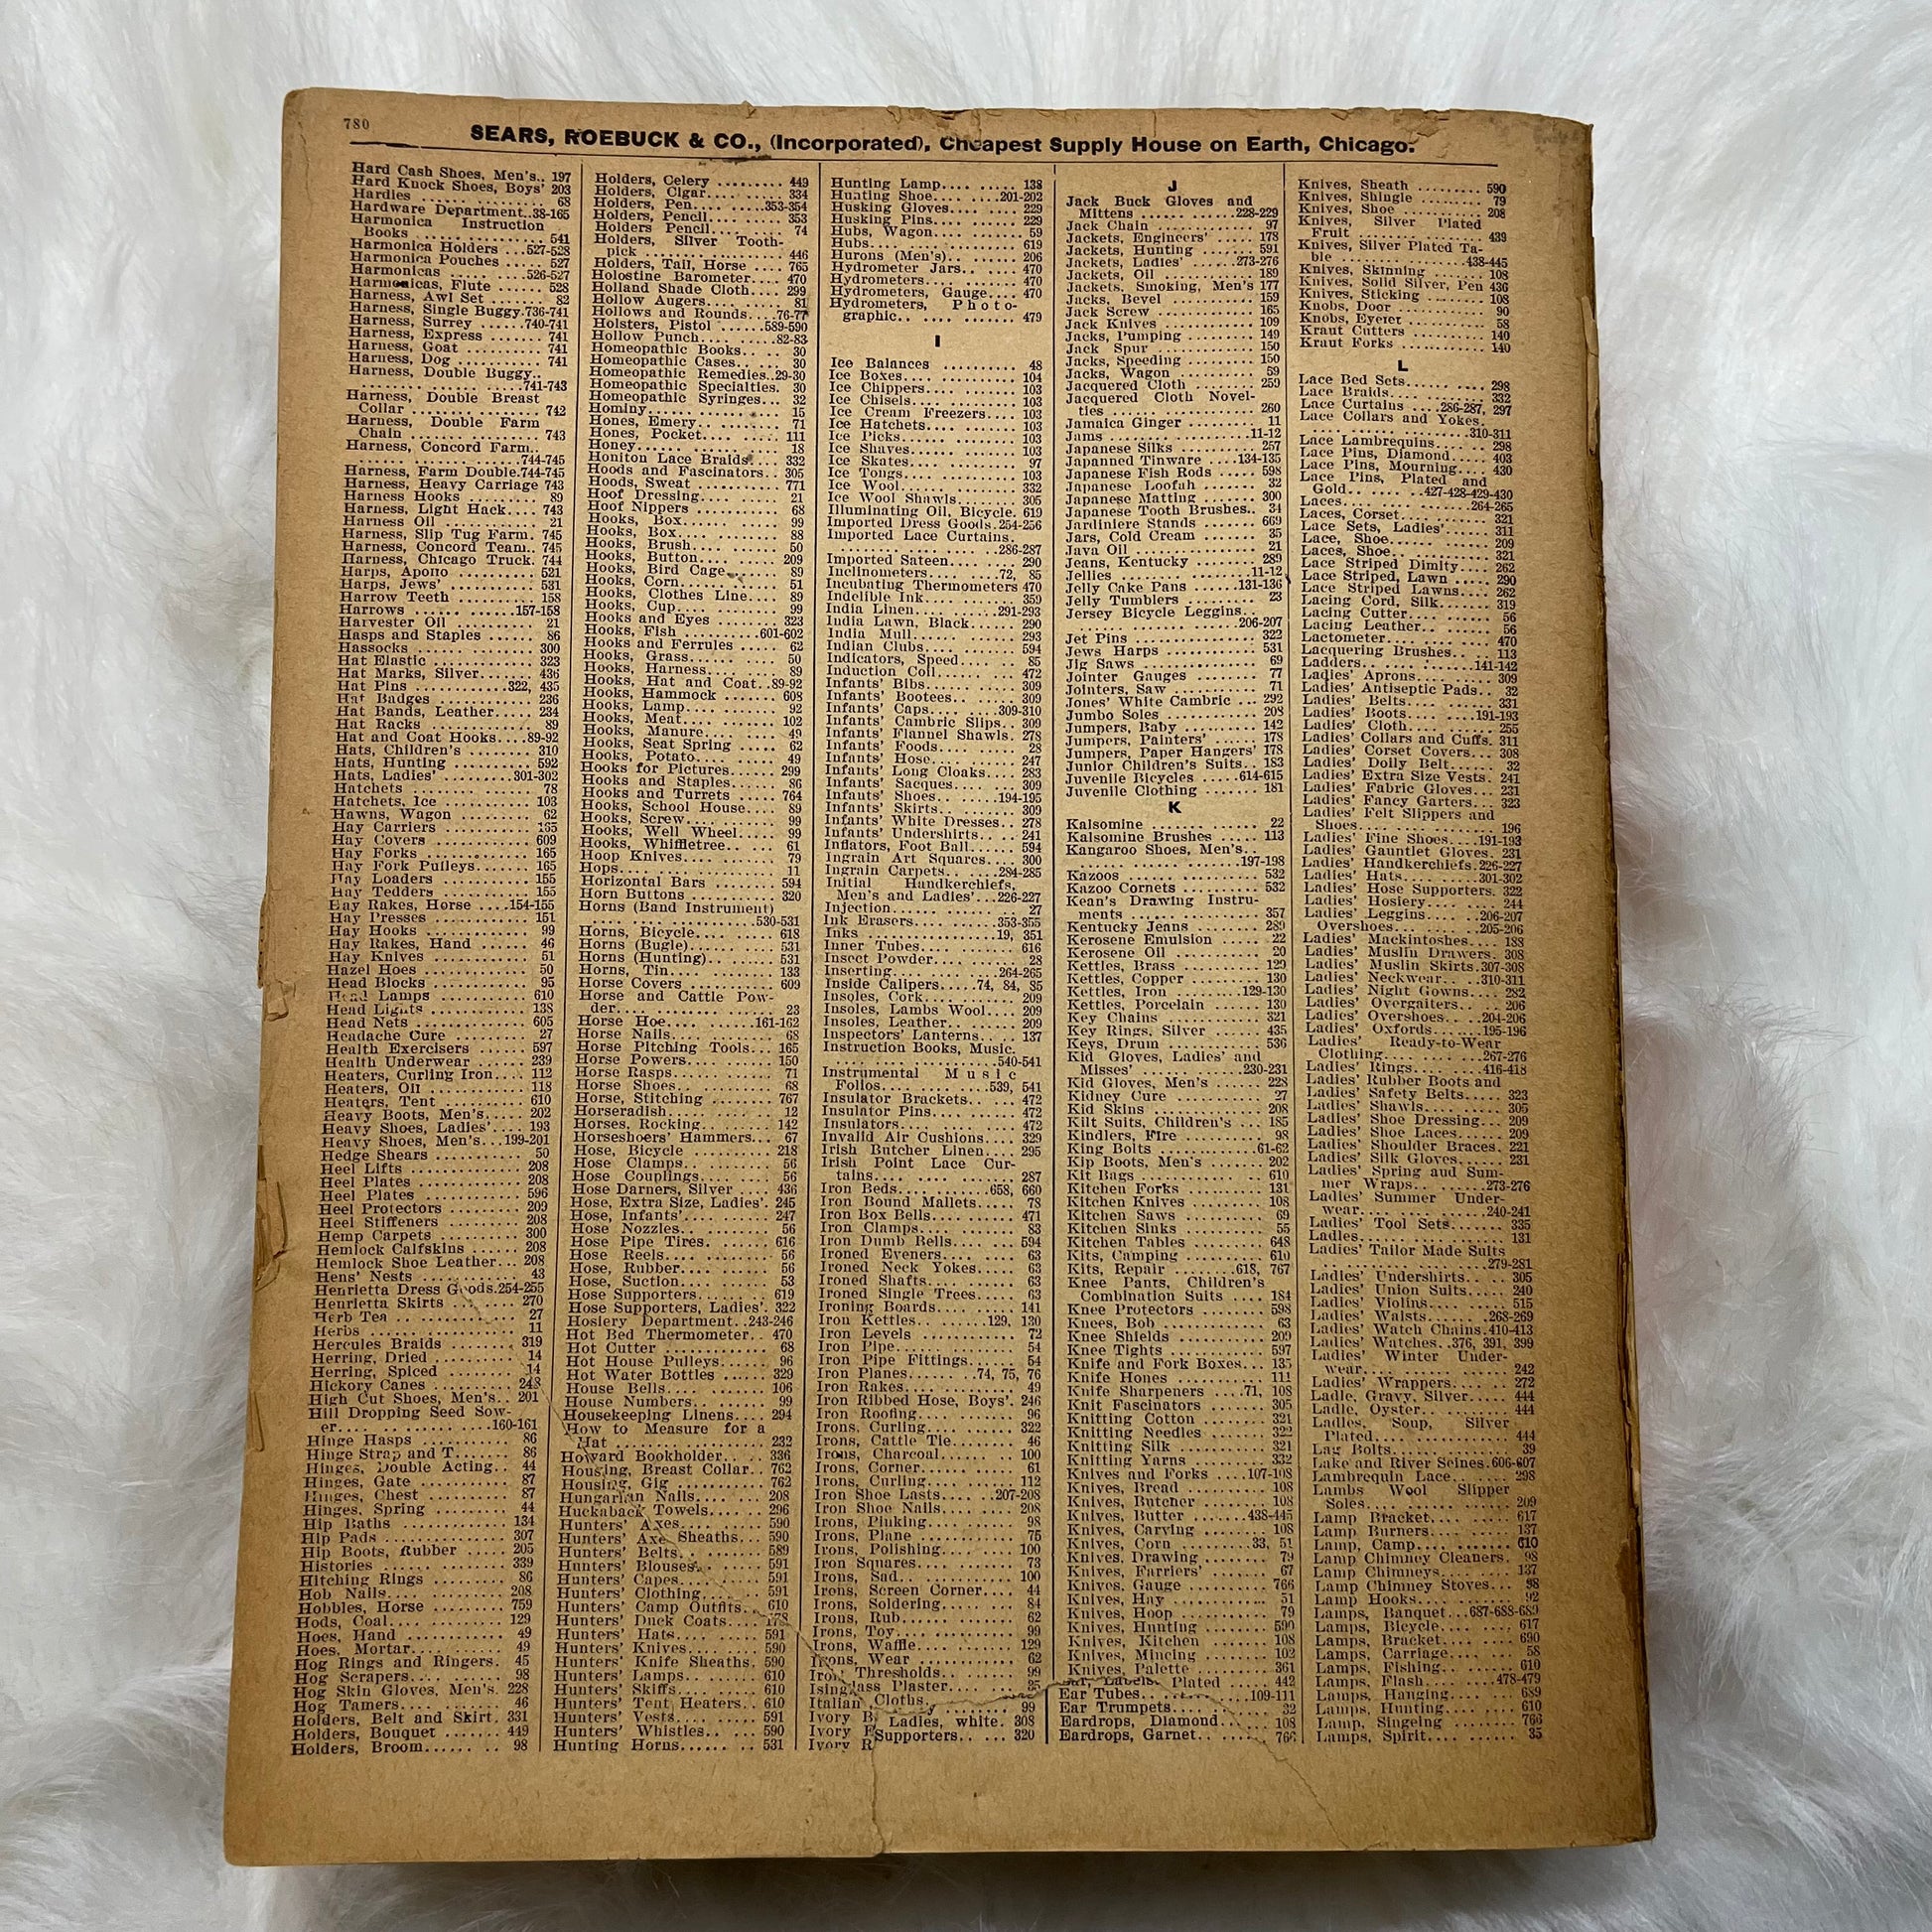 780
SEARS, ROEBUCK & CO., (Incorporated), Cheapest Supply House on Earth, Chicago.
Hard Cash Shoes, Men's.. 197
Hard Knock Shoes, Boys' 203
Hardies .......... 68
Hardware Department..38-165
Harmonica Instruction
Books .......... 541
Harmonica Holders ...527-528
Harmonica Pouches ..... 527
Harmonicas ..... 526-527
Harmonicas, Flute ...... 528
Harness, Awl Set ....... 82
Harness, Single Buggy.736-741
Harness, Surrey ......740-741
Harness, Express ....... 741
Harness, Goat .......... 741
Harness, Dog ........... 741
Harness, Double Buggy..
..........741-743
Harness, Double Breast
Collar .......... 742
Harness, Double Farm
Chain .......... 743
Harness, Concord Farm..
..........744-745
Harness, Farm Double.744-745
Harness, Heavy Carriage 743
Harness Hooks .......... 89
Harness, Light Hack.... 743
Harness Oil ............ 21
Harness, Slip Tug Farm. 745
Harness, Concord Team.. 745
Harness, Chicago Truck. 744
Harps, Apollo .......... 521
Harps, Jews' ........... 531
Harrow Teeth ........... 158
Harrows ..........157-158
Harvester Oil .......... 21
Hasps and Staples ...... 86
Hassocks ............... 300
Hat Elastic ............ 323
Hat Marks, Silver....... 436
Hat Pins ..........322, 435
Hat Badges ............. 236
Hat Bands, Leather..... 234
Hat Racks .............. 89
Hat and Coat Hooks....89-92
Hats, Children's ....... 310
Hats, Hunting .......... 592
Hats, Ladies' ........301-302
Hatchets ............... 78
Hatchets, Ice .......... 103
Hawns, Wagon ........... 62
Hay Carriers ........... 165
Hay Covers ............. 609
Hay Forks .............. 165
Hay Fork Pulleys....... 165
Hay Loaders ............ 155
Hay Tedders ............ 155
Hay Rakes, Horse ....154-155
Hay Presses ............ 151
Hay Hooks .............. 99
Hay Rakes, Hand ........ 46
Hay Knives ............. 51
Hazel Hoes ............. 50
Head Blocks ............ 95
Head Lamps ............. 610
Head Lights ............ 138
Head Nets .............. 605
Headache Cure .......... 27
Health Exercisers ...... 597
Health Underwear ....... 239
Heaters, Curling Iron.... 112
Heaters, Oil ........... 118
Heaters, Tent .......... 610
Heavy Boots, Men's..... 202
Heavy Shoes, Ladies'.... 193
Heavy Shoes, Men's...199-201
Hedge Shears ........... 50
Heel Lifts ............. 208
Heel Plates ............ 208
Heel Plates ............ 596
Heel Protectors ........ 209
Heel Stiffeners ........ 208
Hemp Carpets ........... 300
Hemlock Calfskins ...... 208
Hemlock Shoe Leather... 208
Hens' Nests ............ 43
Henrietta Dress Goods.254-255
Henrietta Skirts ....... 270
Herb Tea ............... 27
Herbs .................. 11
Hercules Braids ........ 319
Herring, Dried ......... 14
Herring, Spiced ........ 14
Hickory Canes .......... 248
High Cut Shoes, Men's.. 201
Hill Dropping Seed Sow-
er..........160-161
Hinge Hasps ............ 86
Hinge Strap and T...... 86
Hinges, Double Acting.. 44
Hinges, Gate ........... 87
Hinges, Chest .......... 87
Hinges, Spring ......... 44
Hip Baths .............. 134
Hip Pads ............... 307
Hip Boots, Rubber ...... 205
Histories .............. 339
Hitching Rings ......... 86
Hob Nails............... 208
Hobbles, Horse ......... 759
Hods, Coal.............. 129
Hoes, Hand ............. 49
Hoes, Mortar............ 49
Hog Rings and Ringers. 45
Hog Scrapers............ 98
Hog Skin Gloves, Men's. 228
Hog Tamers.............. 46
Holders, Belt and Skirt. 331
Holders, Bouquet ....... 449
Holders, Broom.......... 98
Holders, Celery ......... 449
Holders, Cigar.......... 334
Holders, Pen..........353-354
Holders, Pencil......... 353
Holders Pencil.......... 74
Holders, Silver Tooth-
pick .......... 446
Holders, Tail, Horse .... 765
Holostine Barometer.... 470
Holland Shade Cloth.... 299
Hollow Augers.......... 81
Hollows and Rounds....76-77
Holsters, Pistol ......589-590
Hollow Punch..........82-83
Homeopathic Books..... 30
Homeopathic Cases..... 30
Homeopathic Remedies..29-30
Homeopathic Specialties. 30
Homeopathic Syringes... 32
Hominy.................. 15
Hones, Emery........... 71
Hones, Pocket.......... 111
Honey................... 18
Honiton Lace Braids.... 332
Hoods and Fascinators.. 305
Hoods, Sweat ........... 771
Hoof Dressing.......... 21
Hoof Nippers ........... 68
Hooks, Box.............. 99
Hooks, Box.............. 88
Hooks, Brush........... 50
Hooks, Button.......... 209
Hooks, Bird Cage....... 89
Hooks, Corn............ 51
Hooks, Clothes Line.... 89
Hooks, Cup.............. 99
Hooks and Eyes ........ 323
Hooks, Fish ..........601-602
Hooks and Ferrules .... 62
Hooks, Grass........... 50
Hooks, Harness......... 89
Hooks, Hat and Coat..89-92
Hooks, Hammock ........ 608
Hooks, Lamp............ 92
Hooks, Meat............ 102
Hooks, Manure.......... 49
Hooks, Seat Spring ..... 62
Hooks, Potato.......... 49
Hooks for Pictures...... 299
Hooks and Staples...... 86
Hooks and Turrets ..... 764
Hooks, School House.... 89
Hooks, Screw........... 99
Hooks, Well Wheel..... 99
Hooks, Whiffletree..... 61
Hoop Knives............ 79
Hops.................... 11
Horizontal Bars ........ 594
Horn Buttons ........... 320
Horns (Band Instrument)
..........530-531
Horns, Bicycle.......... 618
Horns (Bugle)........... 531
Horns (Hunting)........ 531
Horns, Tin.............. 133
Horse Covers ........... 609
Horse and Cattle Pow-
der.......... 23
Horse Hoe..........161-162
Horse Nails............. 68
Horse Pitching Tools... 165
Horse Powers........... 150
Horse Rasps............ 71
Horse Shoes............ 68
Horse, Stitching ....... 767
Horseradish............. 12
Horses, Rocking........ 142
Horseshoers' Hammers... 67
Hose, Bicycle .......... 218
Hose Clamps............ 56
Hose Couplings......... 56
Hose Darners, Silver .... 436
Hose, Extra Size, Ladies'. 245
Hose, Infants'.......... 247
Hose Nozzles........... 56
Hose Pipe Tires........ 616
Hose Reels............. 56
Hose, Rubber........... 56
Hose, Suction.......... 53
Hose Supporters........ 619
Hose Supporters, Ladies'. 322
Hosiery Department..243-246
Hot Bed Thermometer.. 470
Hot Cutter ............. 68
Hot House Pulleys...... 96
Hot Water Bottles ...... 329
House Bells............. 106
House Numbers......... 99
Housekeeping Linens.... 294
How to Measure for a
Hat .......... 232
Howard Bookholder..... 336
Housing, Breast Collar.. 762
Housing, Gig ........... 762
Hungarian Nails........ 208
Huckaback Towels...... 296
Hunters' Axes.......... 590
Hunters' Axe Sheaths... 590
Hunters' Belts.......... 589
Hunters' Blouses....... 591
Hunters' Capes......... 591
Hunters' Clothing...... 591
Hunters' Camp Outfits.. 610
Hunters' Duck Coats.... 178
Hunters' Hats........... 591
Hunters' Knives........ 590
Hunters' Knife Sheaths. 590
Hunters' Lamps......... 610
Hunters' Skiffs......... 610
Hunters' Tent Heaters.. 610
Hunters' Vests.......... 591
Hunters' Whistles...... 590
Hunting Horns.......... 531
Hunting Lamp.......... 138
Hunting Shoe........201-202
Husking Gloves......... 229
Husking Pins........... 229
Hubs, Wagon........... 59
Hubs.................... 619
Hurons (Men's)......... 206
Hydrometer Jars........ 470
Hydrometers............ 470
Hydrometers, Gauge.... 470
Hydrometers, Photo-
graphic.......... 479
I
Ice Balances .......... 48
Ice Boxes.............. 104
Ice Chippers........... 103
Ice Chisels............ 103
Ice Cream Freezers.... 103
Ice Hatchets........... 103
Ice Picks.............. 103
Ice Shaves............. 103
Ice Skates............. 97
Ice Tongs.............. 103
Ice Wool............... 332
Ice Wool Shawls....... 305
Illuminating Oil, Bicycle. 619
Imported Dress Goods.254-256
Imported Lace Curtains.
..........286-287
Imported Sateen........ 290
Inclinometers.......72, 85
Incubating Thermometers 470
Indelible Ink........... 359
India Linen..........291-293
India Lawn, Black...... 290
India Mull.............. 293
Indian Clubs........... 594
Indicators, Speed....... 85
Induction Coil.......... 472
Infants' Bibs........... 309
Infants' Bootees........ 309
Infants' Caps........309-310
Infants' Cambric Slips.. 309
Infants' Flannel Shawls. 278
Infants' Foods.......... 28
Infants' Hose........... 247
Infants' Long Cloaks.... 283
Infants' Sacques........ 309
Infants' Shoes.......194-195
Infants' Skirts.......... 309
Infants' White Dresses.. 278
Infants' Undershirts.... 241
Inflators, Foot Ball...... 594
Ingrain Art Squares.... 300
Ingrain Carpets......284-285
Initial Handkerchiefs,
Men's and Ladies'...226-227
Injection............... 27
Ink Erasers..........353-355
Inks ..........19, 351
Inner Tubes............ 616
Insect Powder.......... 28
Inserting..........264-265
Inside Calipers.....74, 84, 85
Insoles, Cork........... 209
Insoles, Lambs Wool.... 209
Insoles, Leather........ 209
Inspectors' Lanterns.... 137
Instruction Books, Music.
..........540-541
Instrumental Music
Folios..........539, 541
Insulator Brackets...... 472
Insulator Pins.......... 472
Insulators.............. 472
Invalid Air Cushions.... 329
Irish Butcher Linen..... 295
Irish Point Lace Cur-
tains.......... 287
Iron Beds..........658, 660
Iron Bound Mallets..... 78
Iron Box Bells.......... 471
Iron Clamps............ 83
Iron Dumb Bells........ 594
Ironed Eveners......... 63
Ironed Neck Yokes..... 63
Ironed Shafts.......... 63
Ironed Single Trees.... 63
Ironing Boards......... 141
Iron Kettles.......129, 130
Iron Levels ........... 72
Iron Pipe.............. 54
Iron Pipe Fittings...... 54
Iron Planes......74, 75, 76
Iron Rakes............. 49
Iron Ribbed Hose, Boys'. 246
Iron Roofing........... 96
Irons, Curling.......... 322
Irons, Cattle Tie....... 46
Irons, Charcoal........ 100
Irons, Corner.......... 61
Irons, Curling.......... 112
Iron Shoe Lasts.....207-208
Iron Shoe Nails........ 208
Irons, Pinking.......... 98
Irons, Plane ........... 75
Irons, Polishing........ 100
Iron Squares........... 73
Irons, Sad.............. 100
Irons, Screen Corner.... 44
Irons, Soldering........ 84
Irons, Rub.............. 62
Irons, Toy.............. 99
Irons, Waffle........... 129
Irons, Wear ............ 62
Iron Thresholds........ 99
Isinglass Plaster....... 25
Italian Cloths..........
Ivory B
99
Ladies, white. 308
Ivory F
Supporters..... 320
Ivory R
J
Jack Buck Gloves and
Mittens ..........228-229
Jack Chain ............ 97
Jackets, Engineers' ..... 178
Jackets, Hunting ....... 591
Jackets, Ladies' .....273-276
Jackets, Oil ............ 189
Jackets, Smoking, Men's 177
Jacks, Bevel ........... 159
Jack Screw ............. 165
Jack Knives ............ 109
Jacks, Pumping ........ 149
Jack Spur .............. 150
Jacks, Speeding ........ 150
Jacks, Wagon .......... 59
Jacquered Cloth ........ 259
Jacquered Cloth Novel-
ties .......... 260
Jamaica Ginger ......... 11
Jams ..........11-12
Japanese Silks ......... 257
Japanned Tinware ....134-135
Japanese Fish Rods .... 598
Japanese Loofah ....... 32
Japanese Matting ...... 300
Japanese Tooth Brushes.. 34
Jardiniere Stands ...... 669
Jars, Cold Cream ...... 35
Java Oil ............... 21
Jeans, Kentucky ....... 289
Jellies ..........11-12
Jelly Cake Pans ......131-136
Jelly Tumblers ......... 23
Jersey Bicycle Leggins..
..........206-207
Jet Pins ............... 322
Jews Harps ............ 531
Jig Saws ............... 69
Jointer Gauges ........ 77
Jointers, Saw .......... 71
Jones' White Cambric ... 292
Jumbo Soles ............ 208
Jumpers, Baby .......... 142
Jumpers, Painters' ..... 178
Jumpers, Paper Hangers' 178
Junior Children's Suits.. 183
Juvenile Bicycles .....614-615
Juvenile Clothing ....... 181
K
Kalsomine .............. 22
Kalsomine Brushes ..... 113
Kangaroo Shoes, Men's..
..........197-198
Kazoos ................. 532
Kazoo Cornets .......... 532
Kean's Drawing Instru-
ments .......... 357
Kentucky Jeans ......... 289
Kerosene Emulsion ..... 22
Kerosene Oil ........... 20
Kettles, Brass .......... 129
Kettles, Copper ........ 130
Kettles, Iron ........129-130
Kettles, Porcelain ...... 130
Key Chains ............. 321
Key Rings, Silver ...... 435
Keys, Drum ............. 536
Kid Gloves, Ladies' and
Misses' ..........230-231
Kid Gloves, Men's ...... 228
Kidney Cure ............ 27
Kid Skins .............. 208
Kilt Suits, Children's ... 185
Kindlers, Fire .......... 98
King Bolts ..........61-62
Kip Boots, Men's ....... 202
Kit Bags ............... 610
Kitchen Forks .......... 131
Kitchen Knives ......... 108
Kitchen Saws ........... 69
Kitchen Sinks .......... 55
Kitchen Tables ......... 648
Kits, Camping .......... 610
Kits, Repair ........618, 767
Knee Pants, Children's
Combination Suits .... 184
Knee Protectors ........ 598
Knees, Bob ............. 63
Knee Shields ........... 209
Knee Tights ............ 597
Knife and Fork Boxes... 135
Knife Hones ............ 111
Knife Sharpeners ....71, 108
Knit Fascinators ........ 305
Knitting Cotton ........ 321
Knitting Needles ....... 322
Knitting Silk ........... 321
Knitting Yarns ......... 332
Knives and Forks ....107-108
Knives, Bread .......... 108
Knives, Butcher ........ 108
Knives, Butter .......438-445
Knives, Carving ........ 108
Knives, Corn ........33, 51
Knives, Drawing ........ 79
Knives, Farriers' ....... 67
Knives, Gauge .......... 766
Knives, Hay ............ 51
Knives, Hoop ........... 79
Knives, Hunting ........ 590
Knives, Kitchen ........ 108
Knives, Mincing ........ 102
Knives, Palette ......... 361
Plated .... 442
Ear Tubes..........109-111
Ear Trumpets.......... 32
Eardrops, Diamond..... 108
Eardrops, Garnet....... 766
Knives, Sheath ......... 590
Knives, Shingle ........ 79
Knives, Shoe ........... 208
Knives, Silver Plated
Fruit .......... 439
Knives, Silver Plated Ta-
ble ..........438-445
Knives, Skinning ....... 108
Knives, Solid Silver, Pen 436
Knives, Sticking ........ 108
Knobs, Door ............ 90
Knobs, Eyelet .......... 58
Kraut Cutters .......... 140
Kraut Forks ............ 140
L
Lace Bed Sets.......... 298
Lace Braids............. 332
Lace Curtains ....286-287, 297
Lace Collars and Yokes.
..........310-311
Lace Lambrequins....... 298
Lace Pins, Diamond.... 403
Lace Pins, Mourning.... 430
Lace Pins, Plated and
Gold..........427-428-429-430
Laces..........264-265
Laces, Corset........... 321
Lace Sets, Ladies'...... 311
Lace, Shoe.............. 209
Laces, Shoe............. 321
Lace Striped Dimity.... 262
Lace Striped, Lawn ..... 290
Lace Striped Lawns..... 262
Lacing Cord, Silk....... 319
Lacing Cutter........... 56
Lacing Leather.......... 56
Lactometer.............. 470
Lacquering Brushes..... 113
Ladders..........141-142
Ladies' Aprons.......... 309
Ladies' Antiseptic Pads.. 32
Ladies' Belts............ 331
Ladies' Boots........191-193
Ladies' Cloth............ 255
Ladies' Collars and Cuffs. 311
Ladies' Corset Covers... 308
Ladies' Dolly Belt....... 32
Ladies' Extra Size Vests. 241
Ladies' Fabric Gloves... 231
Ladies' Fancy Garters... 323
Ladies' Felt Slippers and
Shoes.......... 196
Ladies' Fine Shoes....191-193
Ladies' Gauntlet Gloves. 231
Ladies' Handkerchiefs.226-227
Ladies' Hats.........301-302
Ladies' Hose Supporters. 322
Ladies' Hosiery......... 244
Ladies' Leggins......206-207
Overshoes..........205-206
Ladies' Mackintoshes.... 188
Ladies' Muslin Drawers. 308
Ladies' Muslin Skirts.307-308
Ladies' Neckwear....310-311
Ladies' Night Gowns.... 282
Ladies' Overgaiters..... 206
Ladies' Overshoes....204-206
Ladies' Oxfords......195-196
Ladies' Ready-to-Wear
Clothing..........267-276
Ladies' Rings........416-418
Ladies' Rubber Boots and
Ladies' Safety Belts..... 323
Ladies' Shawls.......... 305
Ladies' Shoe Dressing... 209
Ladies' Shoe Laces...... 209
Ladies' Shoulder Braces. 221
Ladies' Silk Gloves...... 231
Ladies' Spring and Sum-
mer Wraps..........273-276
Ladies' Summer Under-
wear..........240-241
Ladies' Tool Sets....... 335
Ladles.................. 131
Ladies' Tailor Made Suits
..........279-281
Ladies' Undershirts..... 305
Ladies' Union Suits..... 240
Ladies' Violins.......... 515
Ladies' Waists.......268-269
Ladies' Watch Chains.410-413
Ladies' Watches..376, 391, 399
Ladies' Winter Under-
wear.......... 242
Ladies' Wrappers....... 272
Ladle, Gravy, Silver.... 444
Ladle, Oyster........... 444
Ladles, Soup, Silver
Plated.......... 444
Lag Bolts............... 39
Lake and River Seines.606-607
Lambrequin Lace....... 298
Lambs Wool Slipper
Soles.......... 209
Lamp Bracket.......... 617
Lamp Burners.......... 137
Lamp, Camp............ 610
Lamp Chimney Cleaners. 98
Lamp Chimneys......... 137
Lamp Chimney Stoves... 98
Lamp Hooks............ 92
Lamps, Banquet...687-688-689
Lamps, Bicycle.......... 617
Lamps, Bracket......... 690
Lamps, Carriage........ 58
Lamps, Fishing......... 610
Lamps, Flash........478-479
Lamps, Hanging........ 689
Lamps, Hunting........ 610
Lamp, Singeing ........ 766
Lamps, Spirit........... 35